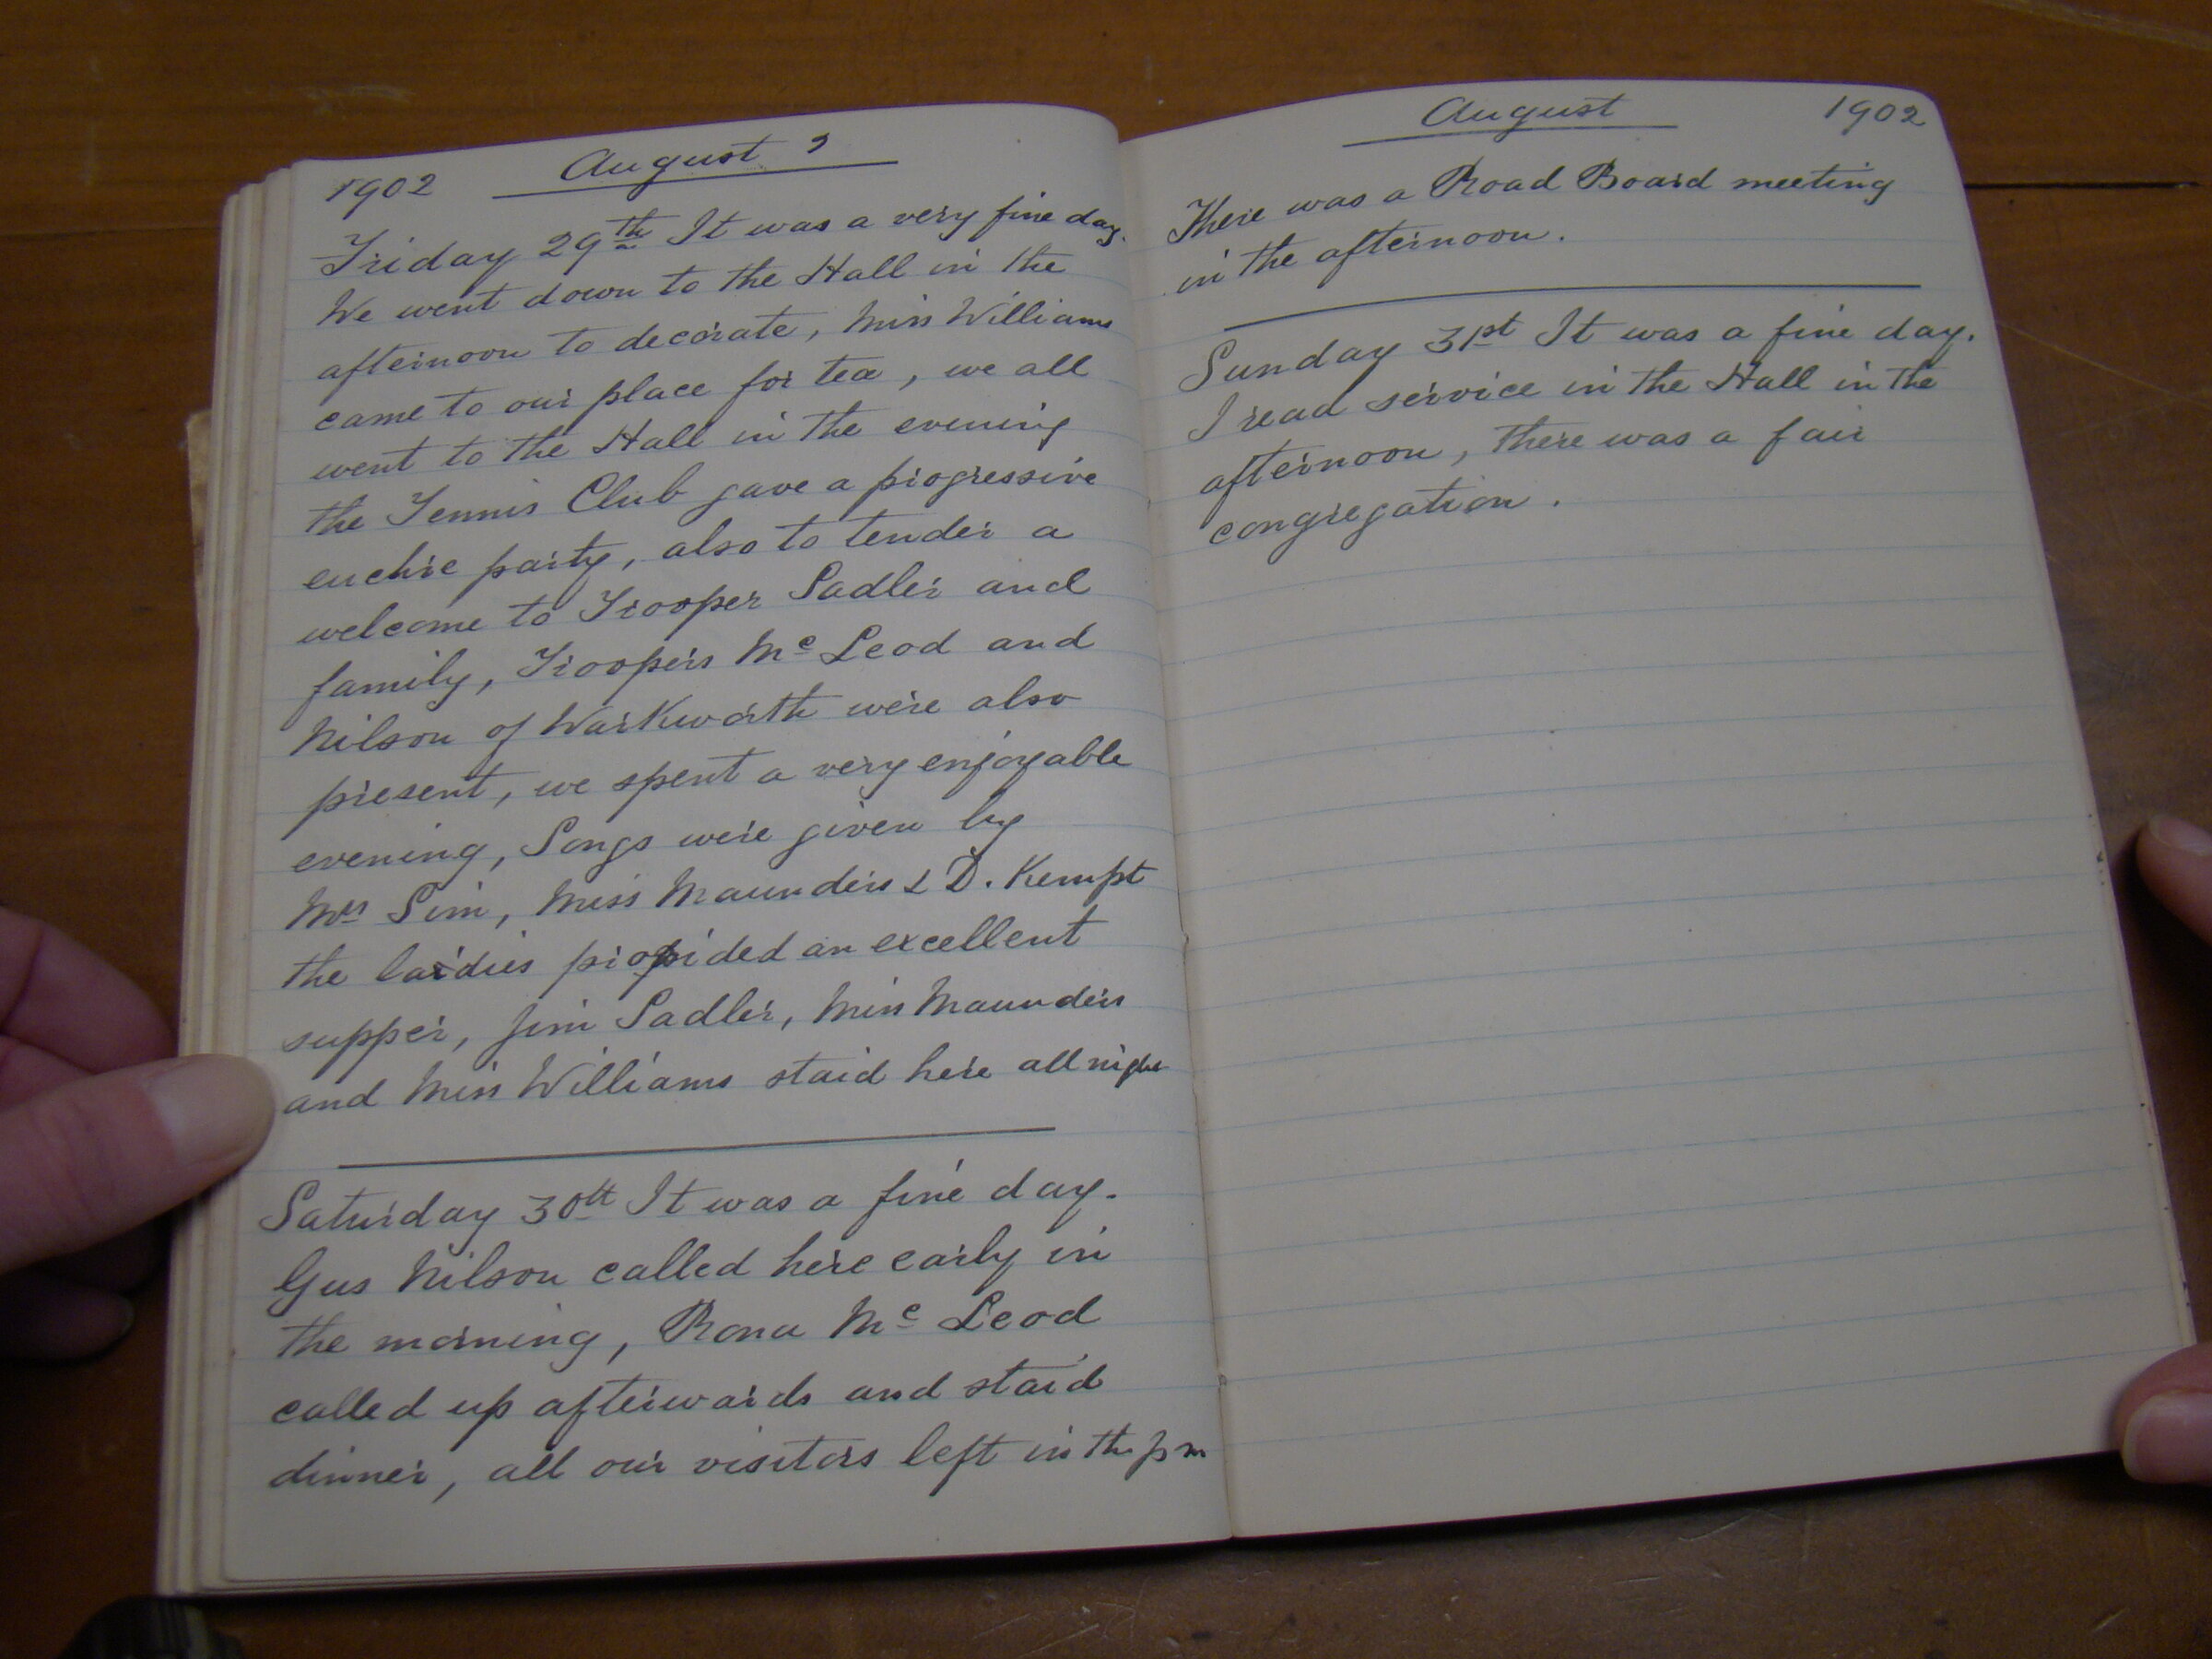 1902 August
Friday 29th It was a very fine day.
We went down to the Hall in the
afternoon to decorate, Miss Williams
came to our place for tea, we all
went to the Hall in the evening
the Tennis Club gave a progressive
euchre party, also to tender a
welcome to Trooper Sadler and
family, Troopers Mc Leod and
Nilson of Warkworth were also
present, we spent a very enjoyable
evening, Songs were given by
Mrs Sim, Miss Maunders & D. Kempt
the laidies provided an excellent
supper, Jim Sadler, Miss Maunders
and Miss Williams staid here all night
Saturday 30th It was a fine day.
Gus Nilson called here early in
the morning, Rona Mc Leod
called up afterwards and staid
dinner, all our visitors left in the pm
August 1902
There was a Road Board meeting
in the afternoon.
Sunday 31st It was a fine day.
I read service in the Hall in the
afternoon, there was a fair
congregation.